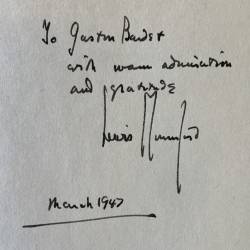 To Gaston Bardet
with warm admiration
and gratitude
Lewis Mumford
March 1947